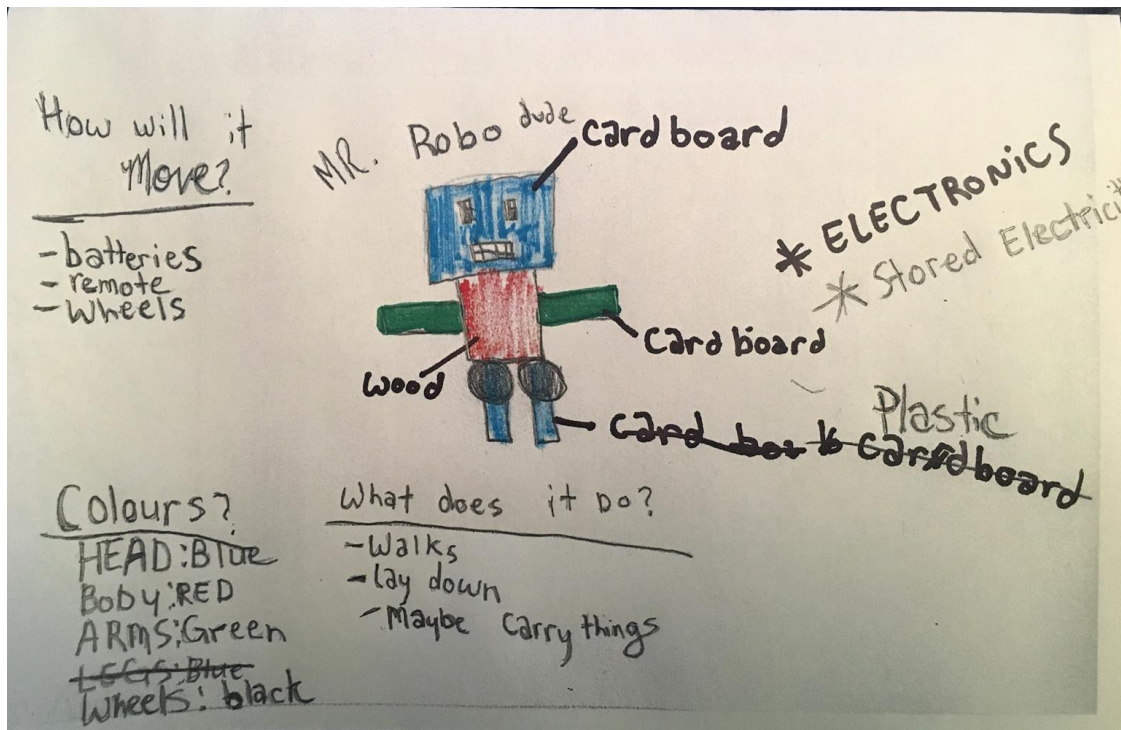 How will it
Move?
- batteries
- remote
- wheels
MR. Robo dude
cardboard
* ELECTRONICS
* Stored
cardboard
wood
Plastic
Colours?
HEAD: Blue
Body: RED
ARMS: Green
LEGS: Blue
Wheels: black
What does it Do?
- Walks
- lay down
- Maybe carry things